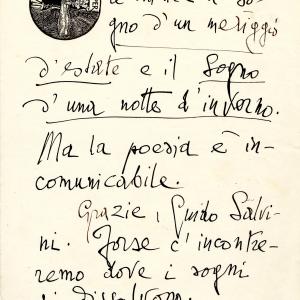 gno d'un meriggio
d'estate e il Sogno
d'una notte d'inverno.
Ma la poesia è in-
comunicabile.
Grazie, Guido Salvi-
ni. Forse c'incontre-
remo dove i sogni
si dissolvono.